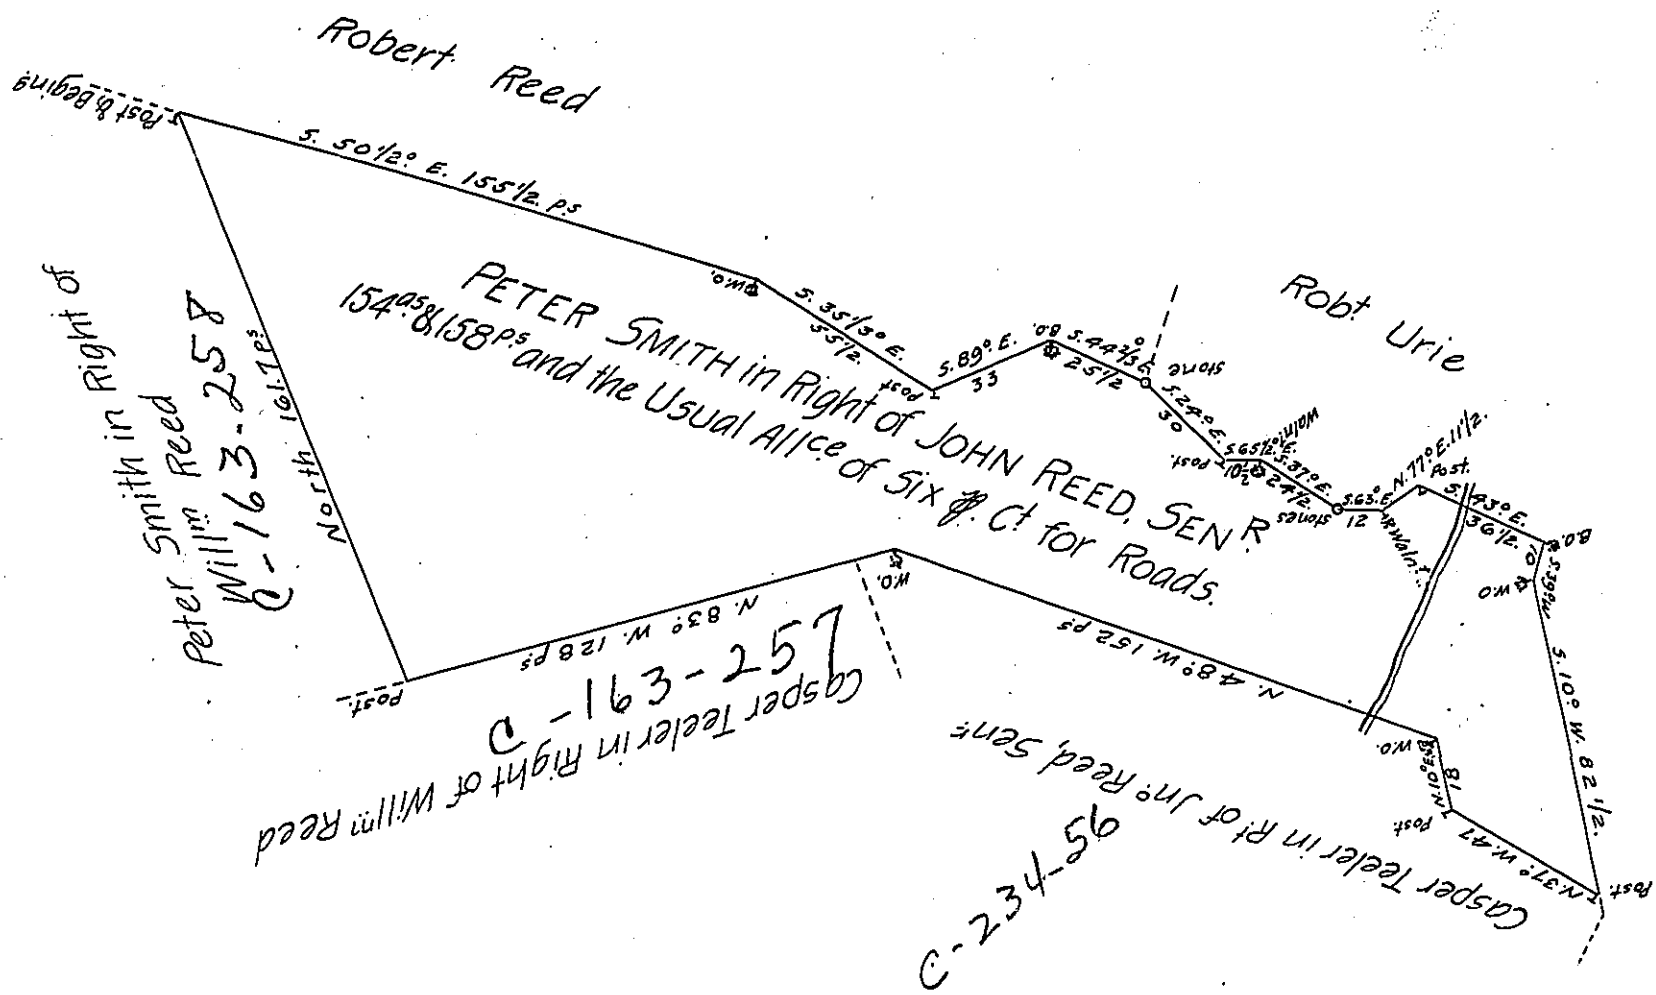 Robert Reed
Post & Begining
S. 50 1/2° E. 155 1/2. p.s
W.O.
S. 35 1/3° E.
55 1/2.
Post
S. 89° E.
33
B.O.
S. 44 2/3° E.
25 1/2
Stone
Robt Urie
S. 24° E.
30
Post.
S. 65 1/2° E.
10 1/2
Walnt
S. 37° E.
24 1/2.
Stones
S. 63° E.
12
B Walnt.
N. 77° E. 11 1/2.
Post.
S. 43° E.
36 1/2.
B.O.
S. 39° W.
10
W.O
S. 10° W. 82 1/2.
Post.
N. 37° W. 47
Post
N. 10° E.
18
W.O.
N. 48° W. 152 p.s
W.O.
N. 83° W. 128 p.s
Post.
North 161.7 p.s
PETER SMITH in Right of JOHN REED, SENR
154 as & 158 p.s and the Usual Allce of Six ⅌. Ct for Roads.
Peter Smith in Right of
Willm Reed
C-163-258
C-163-257
Casper Teeler in Right of Willm Reed
Casper Teeler in Rt of Jno Reed, Senr
C-234-56